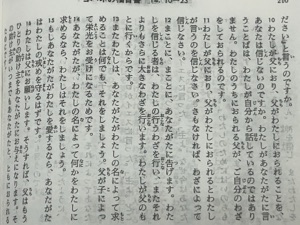 ださい』と言うのですか。
10わたしが父におり、父がわたしにおられることを、
あなたは信じないのですか。わたしがあなたがたに言
うことばは、わたしが自分から話しているのではあり
ません。わたしのうちにおられる父が、ご自分のわざ
をしておられるのです。
11わたしが父におり、父がわたしにおられるとわたし
が言うのを信じなさい。さもなければ、わざによって
信じなさい。
12まことに、まことに、あなたがたに告げます。わた
しを信じる者は、わたしの行うわざを行い、またそれ
よりもさらに大きなわざを行います。わたしが父のも
とに行くからです。
13またわたしは、あなたがたがわたしの名によって求
めることは何でも、それをしましょう。父が子によっ
て栄光をお受けになるためです。
14あなたがたが、わたしの名によって何かをわたしに
求めるなら、わたしはそれをしましょう。
15もしあなたがたがわたしを愛するなら、あなたがた
はわたしの戒めを守るはずです。
16わたしは父にお願いします。そうすれば、父はもう
ひとりの助け主をあなたがたにお与えになります。そ
の助け主がいつまでもあなたがたと、ともにおられる